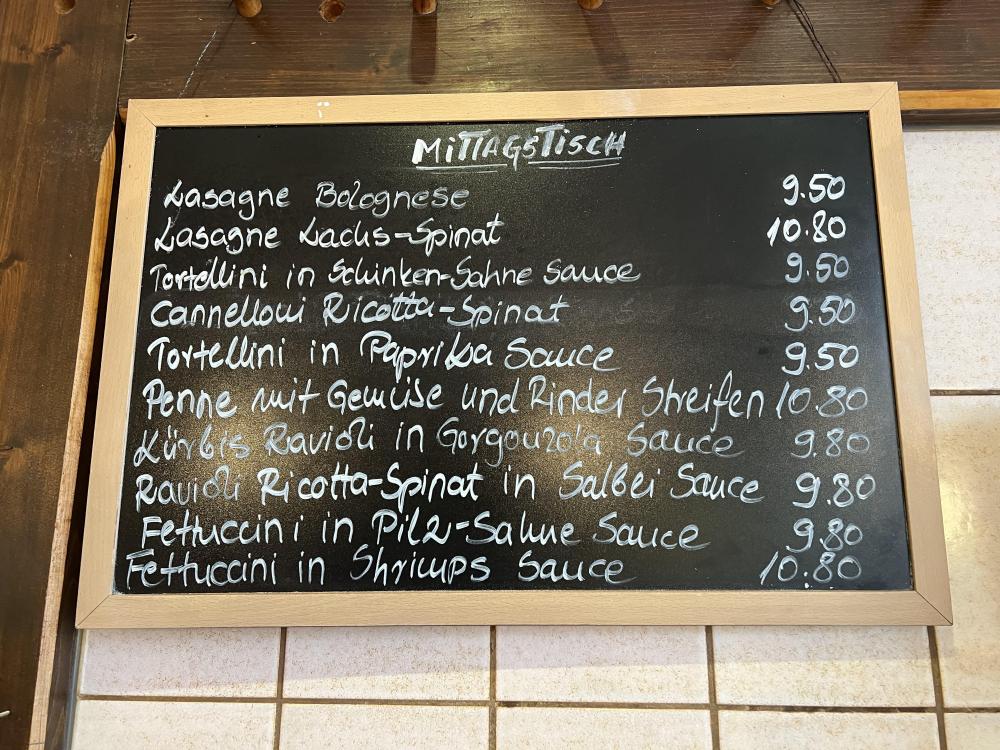 MITTAGSTISCH
Lasagne Bolognese 9.50
Lasagne Lachs-Spinat 10.80
Tortellini in Schinken-Sahne Sauce 9.50
Cannelloni Ricotta-Spinat 9.50
Tortellini in Paprika Sauce 9.50
Penne mit Gemüse und Rinder Streifen 10.80
Kürbis Ravioli in Gorgonzola Sauce 9.80
Ravioli Ricotta-Spinat in Salbei Sauce 9.80
Fettuccini in Pilz-Sahne Sauce 9.80
Fettuccini in Shrimps Sauce 10.80